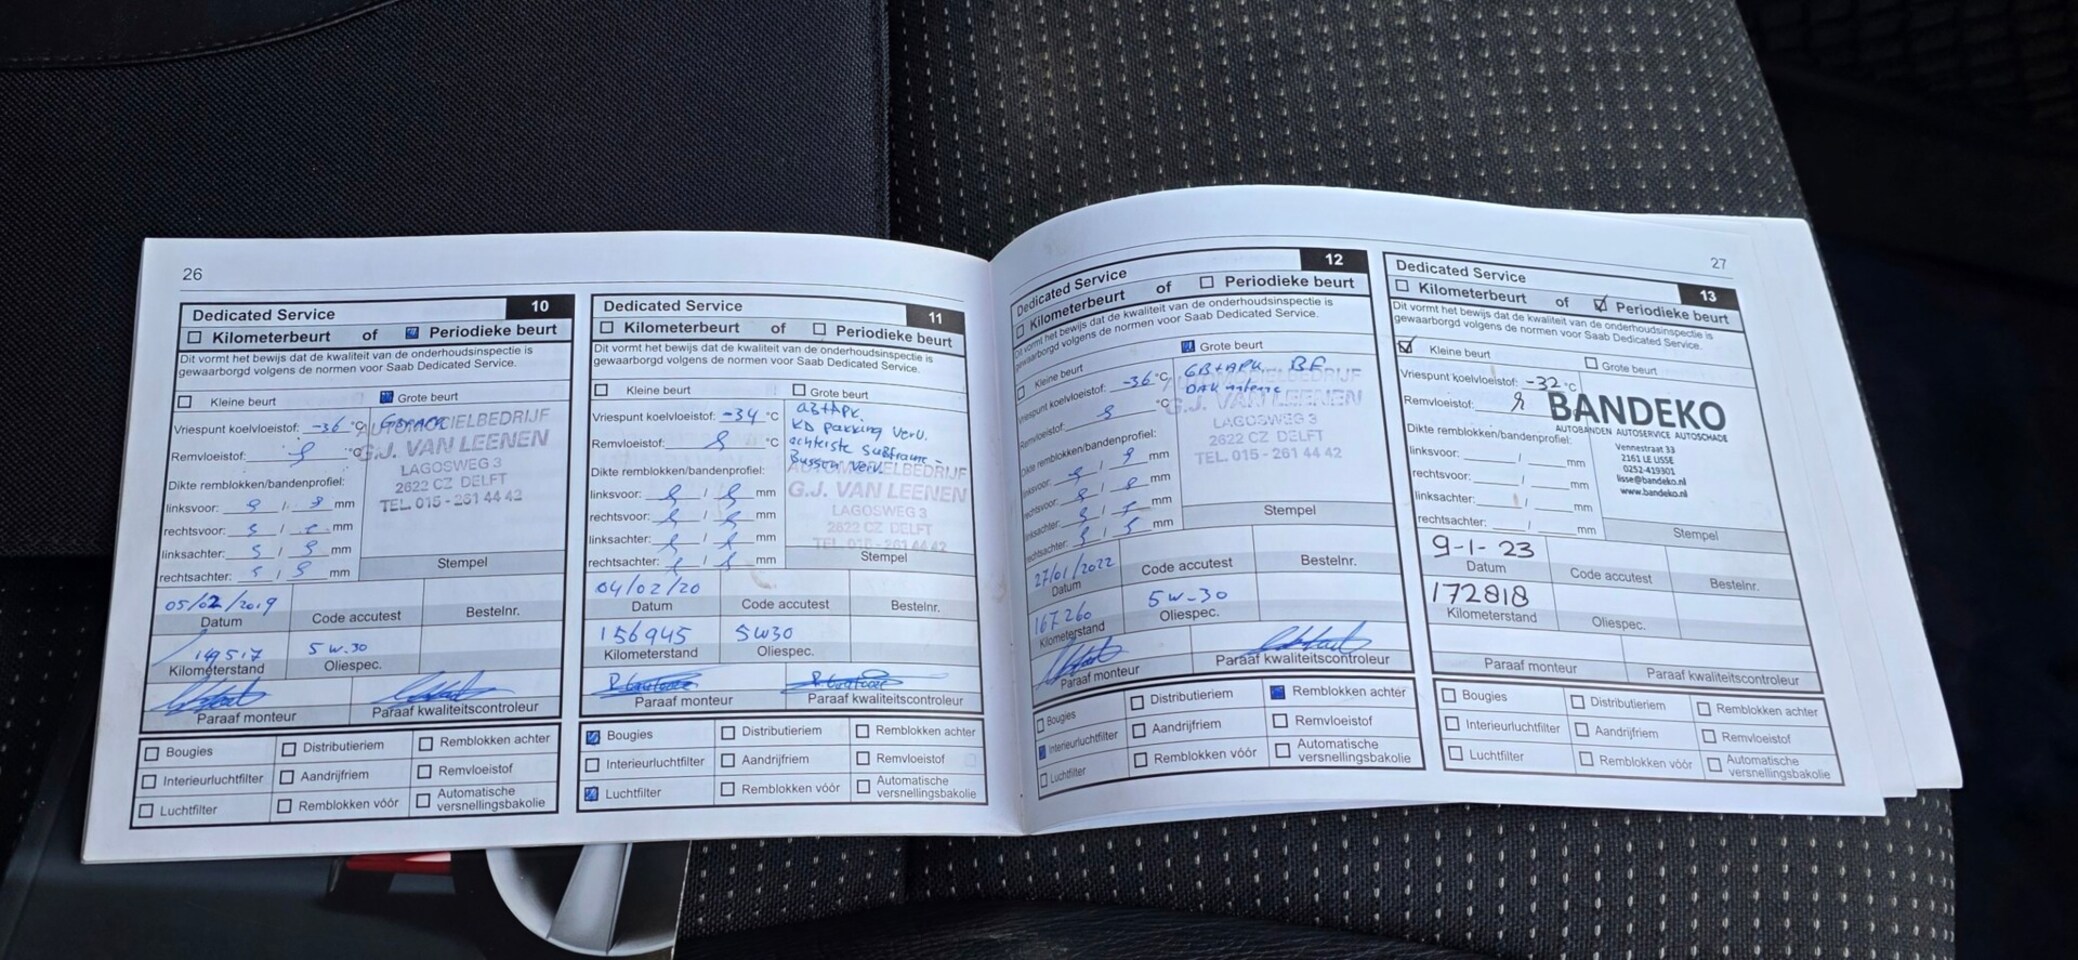 26
Dedicated Service 10
Kilometerbeurt of Periodieke beurt
Dit vormt het bewijs dat de kwaliteit van de onderhoudsinspectie is
gewaarborgd volgens de normen voor Saab Dedicated Service.
Kleine beurt Grote beurt
Vriespunt koelvloeistof: -36 °C
Remvloeistof: °C
G.J. VAN LEENEN
LAGOSWEG 3
2622 CZ DELFT
TEL. 015 - 261 44 42
Dikte remblokken/bandenprofiel:
linksvoor: / mm
rechtsvoor: / mm
linksachter: / mm
rechtsachter: / mm
Stempel
05/02/2019
Datum Code accutest Bestelnr.
5W-30
Kilometerstand Oliespec.
Paraaf monteur Paraaf kwaliteitscontroleur
Bougies Distributieriem Remblokken achter
Interieurluchtfilter Aandrijfriem Remvloeistof
Luchtfilter Remblokken vóór Automatische versnellingsbakolie
Dedicated Service 11
Kilometerbeurt of Periodieke beurt
Dit vormt het bewijs dat de kwaliteit van de onderhoudsinspectie is
gewaarborgd volgens de normen voor Saab Dedicated Service.
Kleine beurt Grote beurt
Vriespunt koelvloeistof: -34 °C
Remvloeistof: °C
KD pakking verv.
achterste subframe-
Bussen verv.
AUTOMOBIELBEDRIJF
G.J. VAN LEENEN
LAGOSWEG 3
2622 CZ DELFT
TEL. 015 - 261 44 42
Dikte remblokken/bandenprofiel:
linksvoor: / mm
rechtsvoor: / mm
linksachter: / mm
rechtsachter: / mm
Stempel
04/02/20
Datum Code accutest Bestelnr.
156945 5W30
Kilometerstand Oliespec.
Paraaf monteur Paraaf kwaliteitscontroleur
Bougies Distributieriem Remblokken achter
Interieurluchtfilter Aandrijfriem Remvloeistof
Luchtfilter Remblokken vóór Automatische versnellingsbakolie
27
Dedicated Service 12
Kilometerbeurt of Periodieke beurt
Dit vormt het bewijs dat de kwaliteit van de onderhoudsinspectie is
gewaarborgd volgens de normen voor Saab Dedicated Service.
Kleine beurt Grote beurt
Vriespunt koelvloeistof: -36 °C
Remvloeistof: °C
GB+APK BF
G.J. VAN LEENEN
LAGOSWEG 3
2622 CZ DELFT
TEL. 015 - 261 44 42
Dikte remblokken/bandenprofiel:
linksvoor: / mm
rechtsvoor: / mm
linksachter: / mm
rechtsachter: / mm
Stempel
27/01/2022
Datum Code accutest Bestelnr.
167260 5W-30
Kilometerstand Oliespec.
Paraaf monteur Paraaf kwaliteitscontroleur
Bougies Distributieriem Remblokken achter
Interieurluchtfilter Aandrijfriem Remvloeistof
Luchtfilter Remblokken vóór Automatische versnellingsbakolie
Dedicated Service 13
Kilometerbeurt of Periodieke beurt
Dit vormt het bewijs dat de kwaliteit van de onderhoudsinspectie is
gewaarborgd volgens de normen voor Saab Dedicated Service.
Kleine beurt Grote beurt
Vriespunt koelvloeistof: -32 °C
Remvloeistof:
BANDEKO
AUTOBANDEN AUTOSERVICE AUTOSCHADE
Vennestraat 33
2161 LE LISSE
0252-419301
lisse@bandeko.nl
www.bandeko.nl
Dikte remblokken/bandenprofiel:
linksvoor: / mm
rechtsvoor: / mm
linksachter: / mm
rechtsachter: / mm
Stempel
9-1-23
Datum Code accutest Bestelnr.
172818
Kilometerstand Oliespec.
Paraaf monteur Paraaf kwaliteitscontroleur
Bougies Distributieriem Remblokken achter
Interieurluchtfilter Aandrijfriem Remvloeistof
Luchtfilter Remblokken vóór Automatische versnellingsbakolie